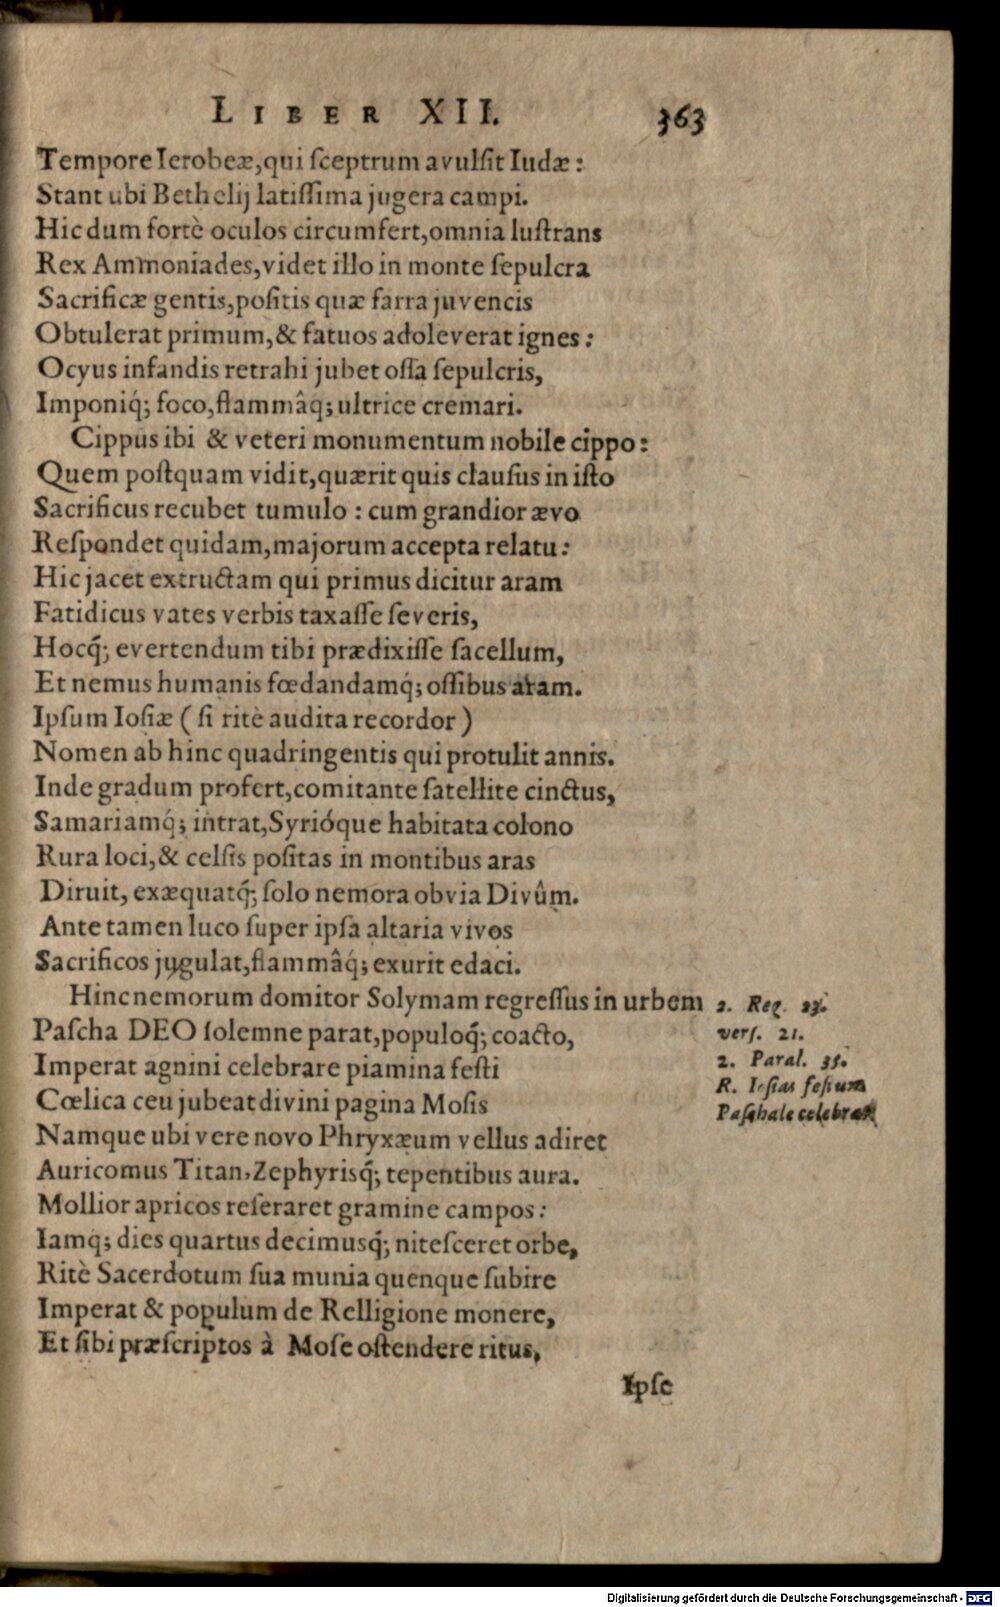 LIBER XII. 363
Tempore Ierobeæ, qui ſceptrum avulſit Iudæ:
Stant ubi Bethelij latiſſima jugera campi.
Hic dum fortè oculos circumfert, omnia luſtrans
Rex Ammoniades, videt illo in monte ſepulcra
Sacrificæ gentis, poſitis quæ farra juvencis
Obtulerat primum, & fatuos adoleverat ignes:
Ocyus infandis retrahi jubet oſſa ſepulcris,
Imponiq́; foco, flammâq́; ultrice cremari.
Cippus ibi & veteri monumentum nobile cippo:
Quem poſtquam vidit, quærit quis clauſus in iſto
Sacrificus recubet tumulo: cum grandior ævo
Reſpondet quidam, majorum accepta relatu:
Hic jacet extructam qui primus dicitur aram
Fatidicus vates verbis taxaſſe ſeveris,
Hocq́; evertendum tibi prædixiſſe ſacellum,
Et nemus humanis fœdandamq́; oſſibus aram.
Ipſum Ioſiæ (ſi ritè audita recordor)
Nomen ab hinc quadringentis qui protulit annis.
Inde gradum profert, comitante ſatellite cinctus,
Samariamq́; intrat, Syrióque habitata colono
Rura loci, & celſis poſitas in montibus aras
Diruit, exæquatq́; ſolo nemora obvia Divûm.
Ante tamen luco ſuper ipſa altaria vivos
Sacrificos jugulat, flammâq́; exurit edaci.
Hinc nemorum domitor Solymam regreſſus in urbem
Paſcha DEO ſolemne parat, populoq́; coacto,
Imperat agnini celebrare piamina feſti
Cœlica ceu jubeat divini pagina Moſis
Namque ubi vere novo Phryxæum vellus adiret
Auricomus Titan, Zephyrisq́; tepentibus aura.
Mollior apricos reſeraret gramine campos:
Iamq́; dies quartus decimusq́; niteſceret orbe,
Ritè Sacerdotum ſua munia quenque ſubire
Imperat & populum de Relligione monere,
Et ſibi præſcriptos à Moſe oſtendere ritus,
Ipſe
2. Reg. 23.
verſ. 21.
2. Paral. 35.
R. Ioſias feſtum
Paſchale celebrat
Digitalisierung gefördert durch die Deutsche Forschungsgemeinschaft - DFG